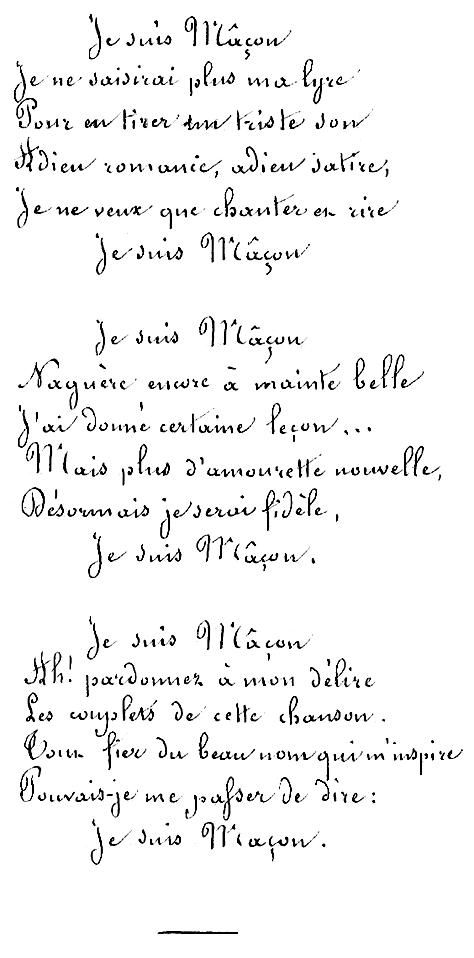 Je suis Mâçon
Je ne saisirai plus ma lyre
Pour en tirer un triste son
Adieu romance, adieu satire,
Je ne veux que chanter en rire
Je suis Mâçon
Je suis Mâçon
Naguère encore à mainte belle
J'ai donné certaine leçon...
Mais plus d'amourette nouvelle,
Désormais je serai fidèle,
Je suis Mâçon.
Je suis Mâçon
Ah! pardonnez à mon délire
Les couplets de cette chanson.
Tout fier du beau nom qui m'inspire
Pouvais-je me passer de dire:
Je suis Maçon.